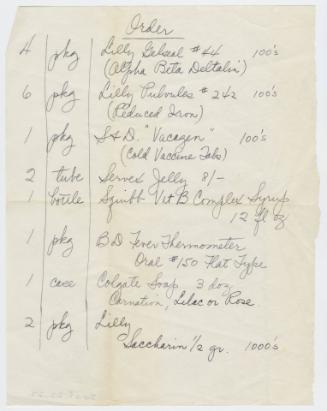 Order
4 pkg Lilly Gelseal #44 100's
(Alpha Beta Deltalin)
6 pkg Lilly Pulvules #242 100's
(Reduced Iron)
1 pkg S&D. "Vacagen" 100's
(Cold Vaccine Tabs)
2 tube Servex Jelly 8/-
1 bottle Squibb Vit B Complex Syrup
12 fl oz
1 pkg BD Fever Thermometer
Oral #150 Flat Type
1 case Colgate Soap, 3 doz
Carnation, Lilac or Rose.
2 pkg Lilly
Saccharin 1/2 gr. 1000's